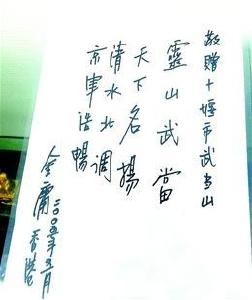 敬贈十堰市武当山
靈山武當
天下名揚
清水北調
京華浩暢
金庸
二〇〇五年 月 香港